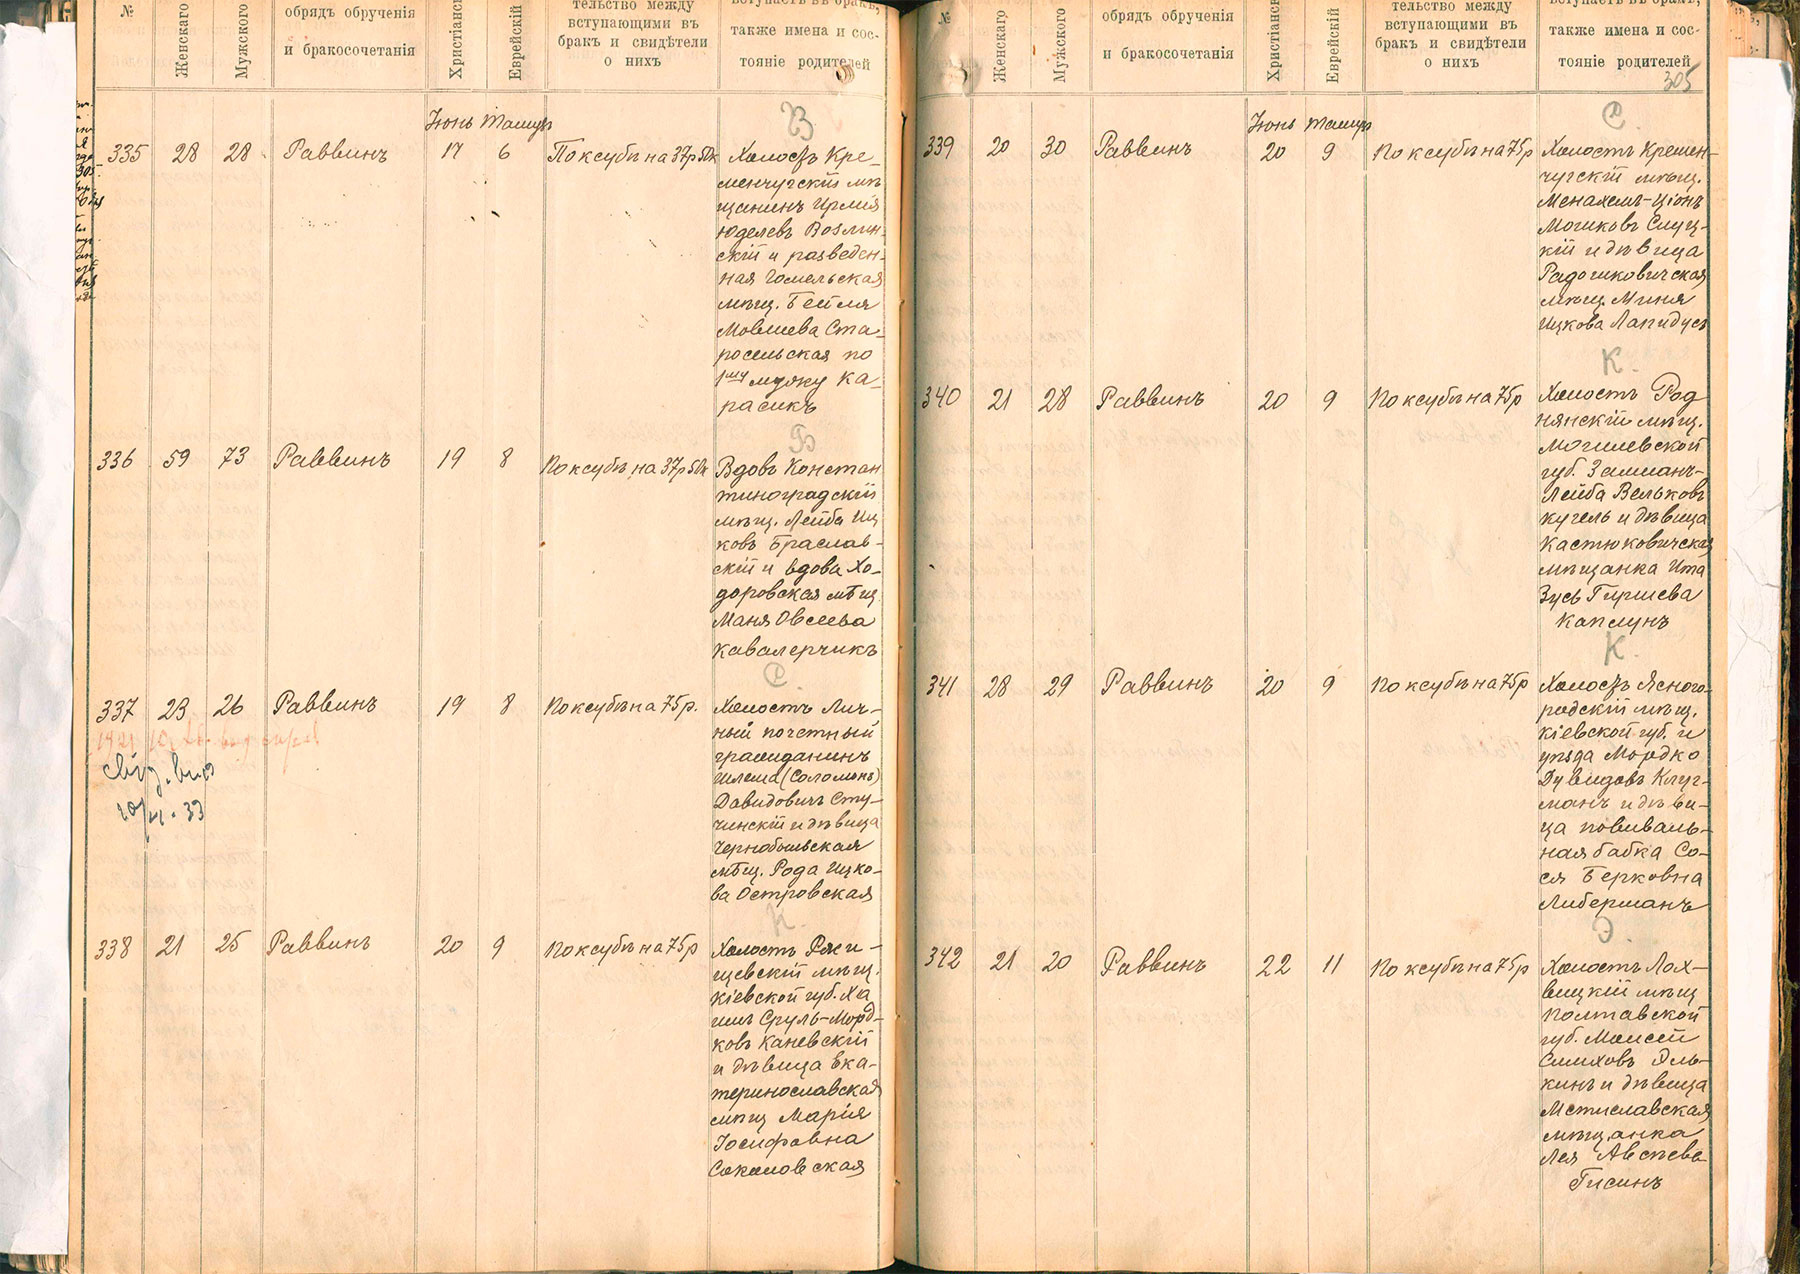 №
Женскаго
Мужского
обрядъ обрученія
и бракосочетанія
Христіанск
Еврейскій
тельство между
вступающими въ
бракъ и свидѣтели
о нихъ
вступаетъ въ бракъ,
также имена и сос-
тояніе родителей
Іюнь Тамузъ
В
335 28 28 Раввинъ 17 6 По ксубѣ на 37р 50к
Холостъ Кре-
менчугскій мѣ
щанинъ Ирмія
Юделевъ Возлин-
скій и разведен-
ная Гомельская
мѣщ. Бейля
Мовшева Ста-
росельская по
1му мужу Ка-
расикъ
Б
336 59 73 Раввинъ 19 8 По ксубѣ на 37р 50к
Вдовъ Констан
тиноградскій
мѣщ. Лейба Иц
ковъ Браслав-
скій и вдова Хо-
доровская мѣщ.
Маня Овсеева
Кавалерчикъ
С
337 23 26 Раввинъ 19 8 По ксубѣ на 75р.
Холостъ Лич-
ный почетный
гражданинъ
Шлема (Соломонъ)
Давидовичъ Сту-
чинскій и дѣвица
Чернобыльская
мѣщ. Рода Ицко-
ва Островская
К.
338 21 25 Раввинъ 20 9 По ксубѣ на 75р
Холостъ Ржи-
щевскій мѣщ.
Кіевской губ. Ха
имъ Сруль-Морд-
ковъ Каневскій
и дѣвица Ека-
теринославская
мѣщ Марія
Іосифовна
Соколовская
№
Женскаго
Мужского
обрядъ обрученія
и бракосочетанія
Христіанск
Еврейскій
тельство между
вступающими въ
бракъ и свидѣтели
о нихъ
вступаетъ въ бракъ,
также имена и сос-
тояніе родителей
305
Іюнь Тамузъ
С
339 20 30 Раввинъ 20 9 По ксубѣ на 75р
Холостъ Кремен-
чугскій мѣщ.
Менахемъ-Ціонъ
Мошковъ Слуц-
кій и дѣвица
Радошковичская
мѣщ. Миня
Ицкова Лапидусъ
К.
340 21 28 Раввинъ 20 9 По ксубѣ на 75р
Холостъ Род
нянскій мѣщ.
Могилевской
губ. Залманъ-
Лейба Вельковъ
Кугель и дѣвица
Костюковичская
мѣщанка Ита
Зусь Гиршева
Каплунъ
К.
341 28 29 Раввинъ 20 9 По ксубѣ на 75р
Холостъ Ясного-
родскій мѣщ.
Кіевской губ. и
уѣзда Мордко
Дувидовъ Клуг-
манъ и дѣви-
ца повиваль-
ная бабка Со-
ся Берковна
Либерманъ
Э.
342 21 20 Раввинъ 22 11 По ксубѣ на 75р
Холостъ Лох-
вицкій мѣщ
Полтавской
губ. Моисей
Симховъ Эль-
кинъ и дѣвица
Мстиславская
мѣщанка
Лея Авсѣева
Гисинъ